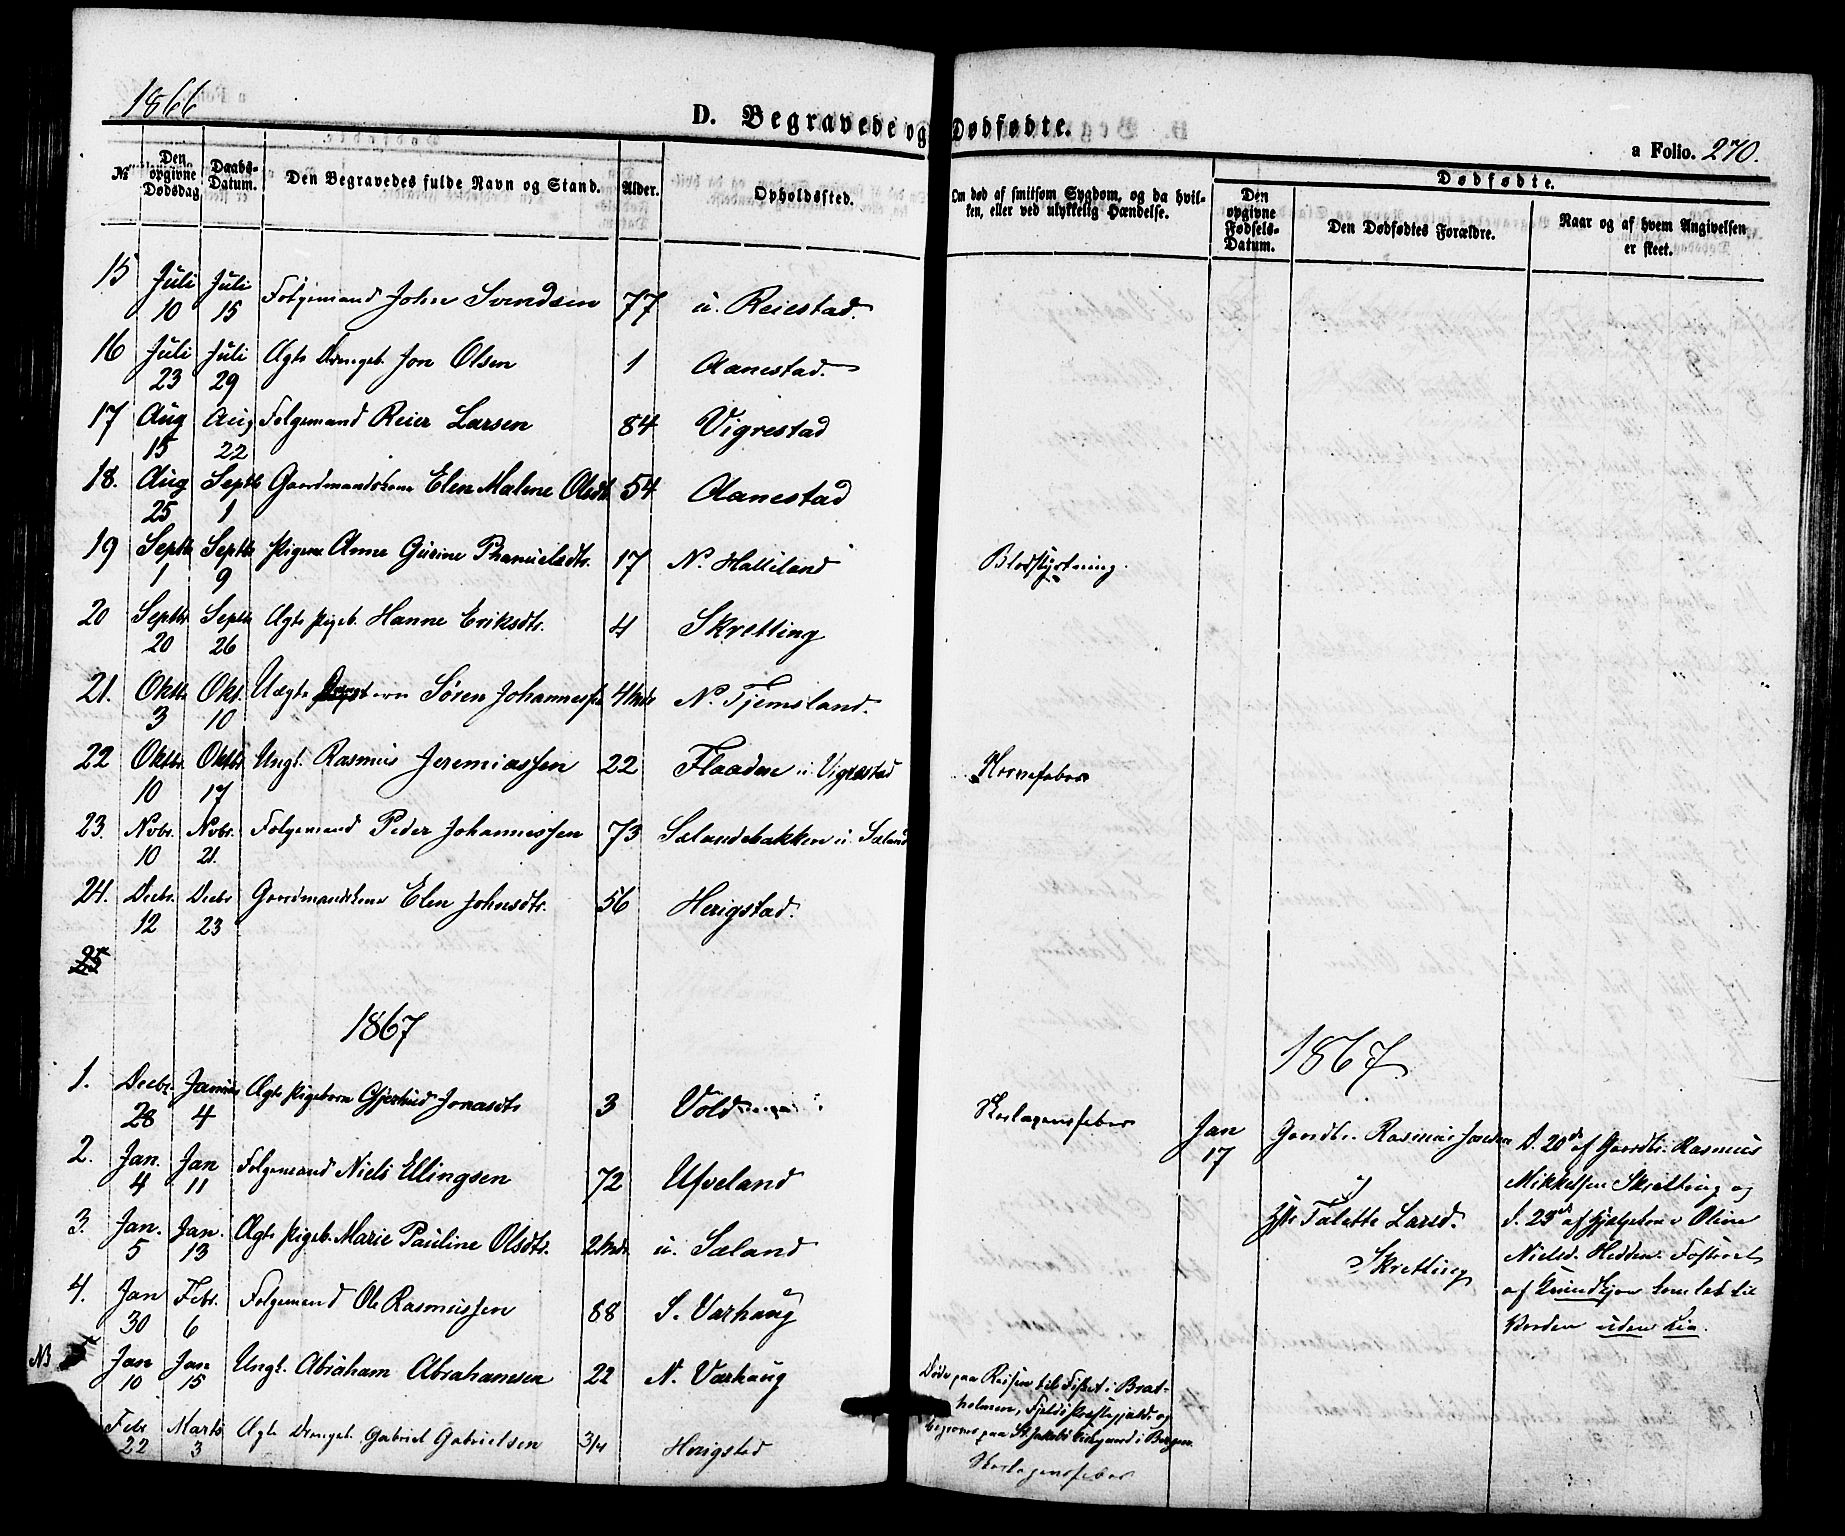 1866
D. Begravede og Dødfødte.
a Folio. 270.
№
Den opgivne Dødsdag
Daabs-Datum.
Den Begravedes fulde Navn og Stand.
Alder.
Opholdssted.
Om død af smitsom Sygdom, og da hvilken, eller ved ulykkelig Hændelse.
Dødfødte.
Den opgivne Fødsels-Datum.
Den Dødfødtes Forældre.
Naar og af hvem Angivelsen er skeet.
15 Juli 10 Juli 15 Folgemand John Svendsen 77 u. Reiestad.
16 Juli 23 Juli 29 Ægte Drengeb. Jon Olsen 1 Aanestad.
17 Aug 15 Aug 22 Folgemand Reier Larsen 84 Vigrestad
18. Aug 25 Septb 1 Gaardmandskone Elen Malene Olsdt. 54 Aanestad
19 Septb 1 Septb 9 Pigene Anne Gurine Phanuelsdtr. 17 N. Halliland Blodstyrtning.
20 Septbr 20 Septb 26 Ægte Pigeb. Hanne Eriksdtr. 4 Skretting
21. Oktb 3 Okt. 10 Uægte Søren Johannessen 4 Mdr N. Tjemsland.
22 Oktbr. 10 Oktbr 17 Ungk. Rasmus Jeremiassen 22 Flaadene u. Vigrestad Nervefeber
23. Nvbr. 10 Nvbr. 21. Folgemand Peder Johannessen 73 Sælandsbakken u. Sæland
24. Decbr. 12 Decbr 23 Gaardmandskone Elen Johnsdtr. 56 Herigstad.
25
1867
1867.
1. Decbr. 28 Januar 4 Ægte Pigebarn Gjertrud Jonasdtr 3 Vold Skarlagensfeber
Jan 17 Gaardbr. Rasmus Jonsen
og
Hst Talette Larsd.
Skretting
D. 20de af Gaardbr. Rasmus
Mikkelsen Skretting og
d. 23de af Hjælpekone Oline
Nielsd. Hedden. Fosteret
af Kvindkjøn kom let til
Verden uden Liv.
2. Jan. 4 Jan 11 Folgemand Niels Ellingsen 72 Ufveland
3. Jan. 5 Jan. 13 Ægte Pigeb. Marie Pauline Olsdtr. 2 Mdr. u. Sæland
4. Jan 30 Febr. 6 Folgemand Ole Rasmussen 88 S. Varhaug
NB 5 Jan 10 Jan 15 Ungk. Abraham Abrahamsen 22 N. Varhaug
Døde paa Reisen til Fisket i Brat-
holmen, Fjelds Præstegjæld og
begraves paa St. Jakobs Kirkegaard i Bergen.
Febr 22 Marts 3 Ægte Drengeb. Gabriel Gabrielsen 3/4 Herigstad Skarlagensfeber